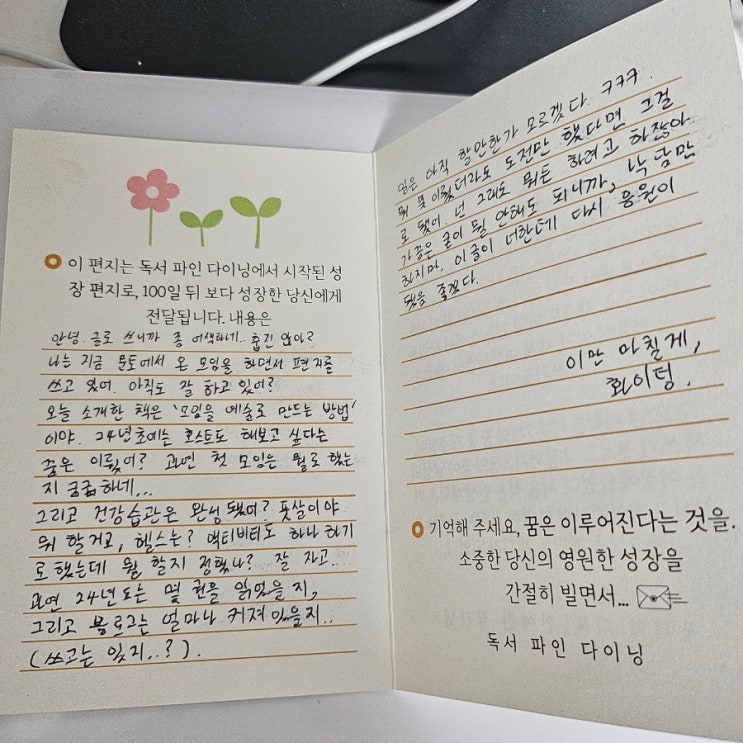 이 편지는 독서 파인 다이닝에서 시작된 성
장 편지로, 100일 뒤 보다 성장한 당신에게
전달됩니다. 내용은
안녕. 글로 쓰니까 좀 어색하네.. 춥진 않아?
나는 지금 문토에서 온 모임을 하면서 편지를
쓰고 있어. 아직도 잘 하고 있어?
오늘 소개한 책은 '모임을 예술로 만드는 방법'
이야. 24년초에는 호스트도 해보고 싶다는
꿈은 이뤘어? 과연 첫 모임은 뭘로 했는
지 궁금하네...
그리고 건강습관은 완성 됐어? 풋살이야
뭐 할거고, 헬스는? 액티비티도 하나 하기
로 했는데 뭘 할지 정했나? 잘 자고..
과연 24년도는 몇 권을 읽었을지,
그리고 블로그는 얼마나 커져 있을지..
(쓰고는 있지..?).
임은 아직 할만한가 모르겠다. ㅋㅋㅋ.
뭐 못 이뤘더라도 도전만 했다면 그걸
로 됐어. 넌 그래도 뭐든 하려고 하잖아.
가끔은 굳이 뭘 안해도 되니까, 낙담만
하지마. 이 글이 너한테 다시 응원이
됐음 좋겠다.
이만 마칠게,
화이팅.
기억해 주세요, 꿈은 이루어진다는 것을.
소중한 당신의 영원한 성장을
간절히 빌면서...
독서 파인 다이닝